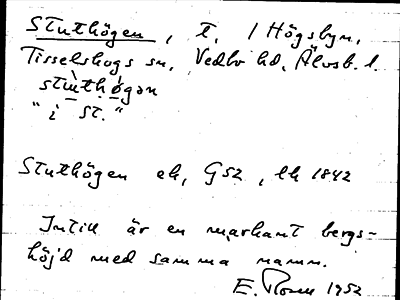 Stuthögen, t. / Högsbyn,
Tisselskogs sn, Vedbo hd, Älvsb. l.
stùthø̀gən
" i st. "
Stuthögen ek, GSZ, lh 1842
Intill är en markant bergs-
höjd med samma namn.
E. 1952